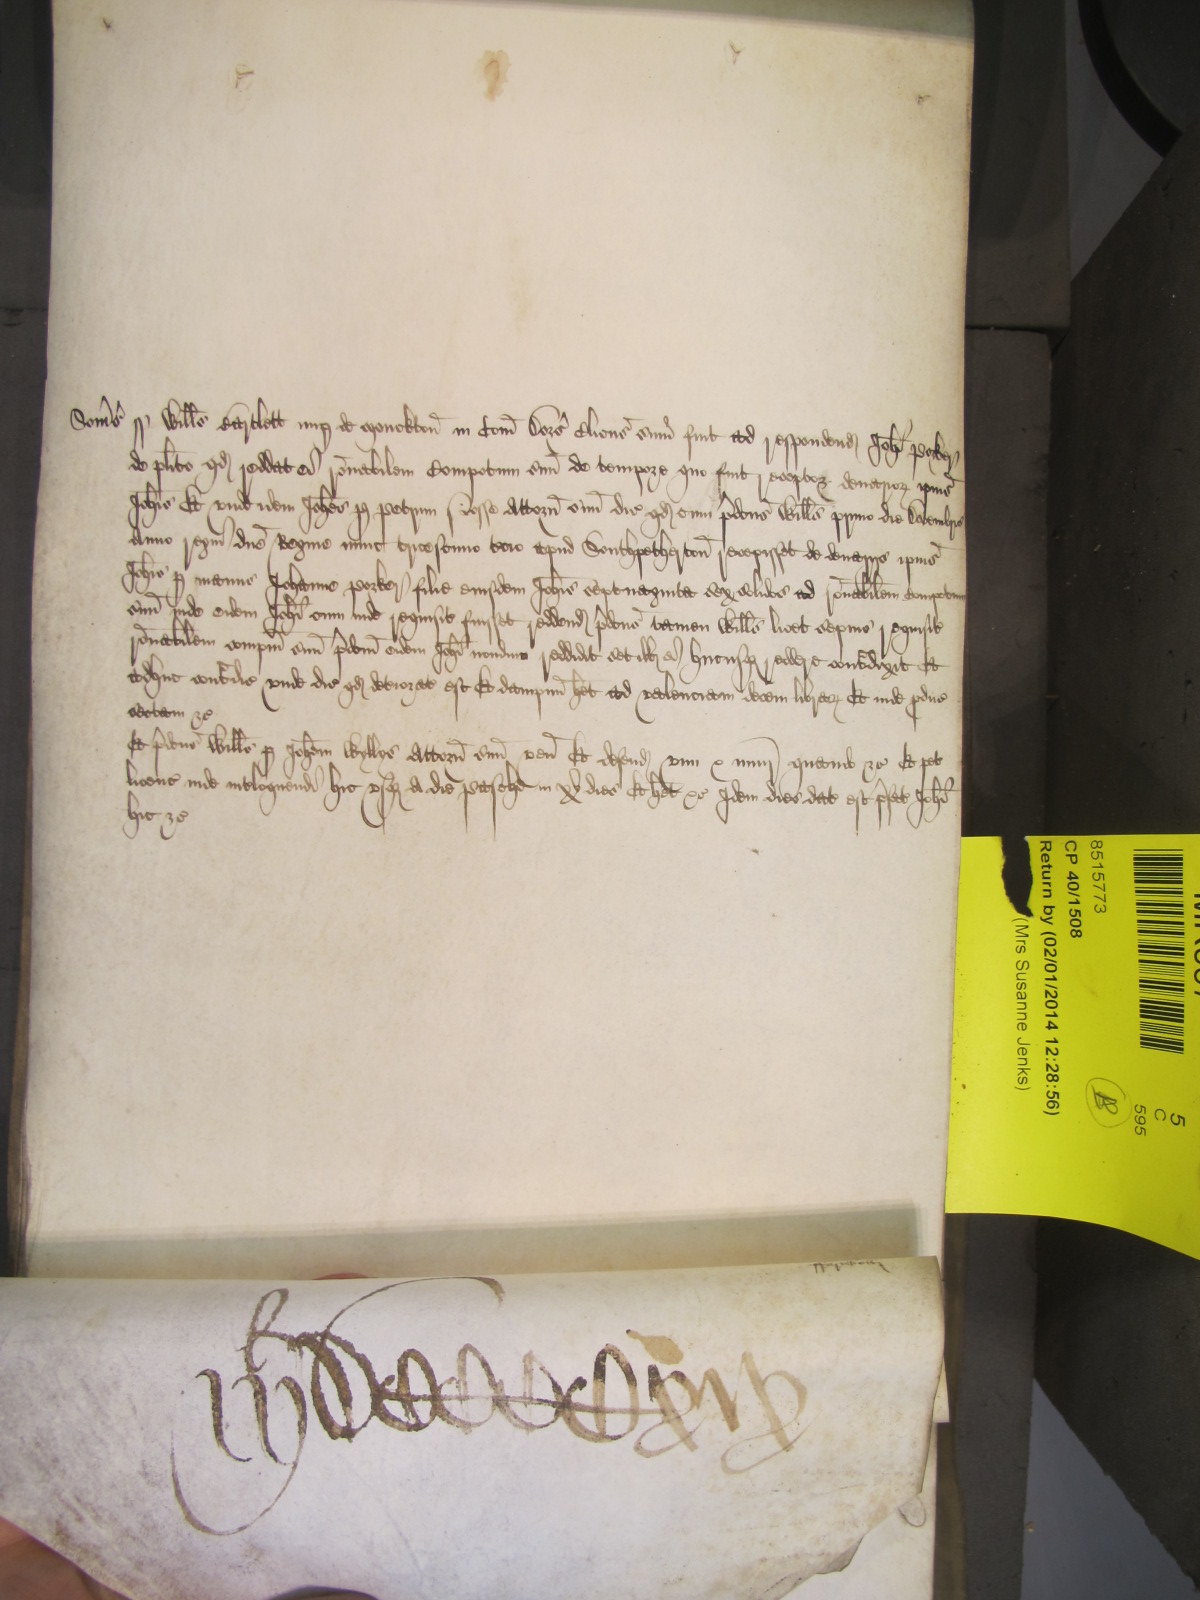 Som̄s ss Wills Bartlett nup de Monckton in Com Dors Clicus sum fuit ad respondend Johi Parker
de plito qd reddat ei rōnabilem Compotum suū de tempore quo fuit receptor denarior ipius
Johis Et unde idem Johes p Petrum attorn suū dic qd cum pdcus Wills primo die Decembris
Anno regni dne Regine nunc tricesimo tcio apud Southpetherton recepisset de denariis ipius
Johis p manus Johanne Parker filie eiusdem Johis septuaginta sex solidos ad rōnabilem compotum
suū inde eidem Johi cum inde requisit fuisset reddend pdcus tamen Wills licet sepius requisit
rōnabilem compm suū pdcum eidem Johi nondum reddidit set ill ei hucusq redde contradixit Et
adhuc contradic unde dic qd deteriorat est Et dampnū het ad valenciam decem librar Et inde pduc
sectam &c
Et pdcus Wills p Johem Wyllys Attorn suū ven Et defend vim & iniur quando &c Et pet
licenc inde intloquendi hic usq a die Pasche in xv dies Et het &c Idem dies dat est pfat Johi
hic &c
8515773
CP 40/1508
Return by (02/01/2014 12:28:56)
(Mrs Susanne Jenks)
5
C
595